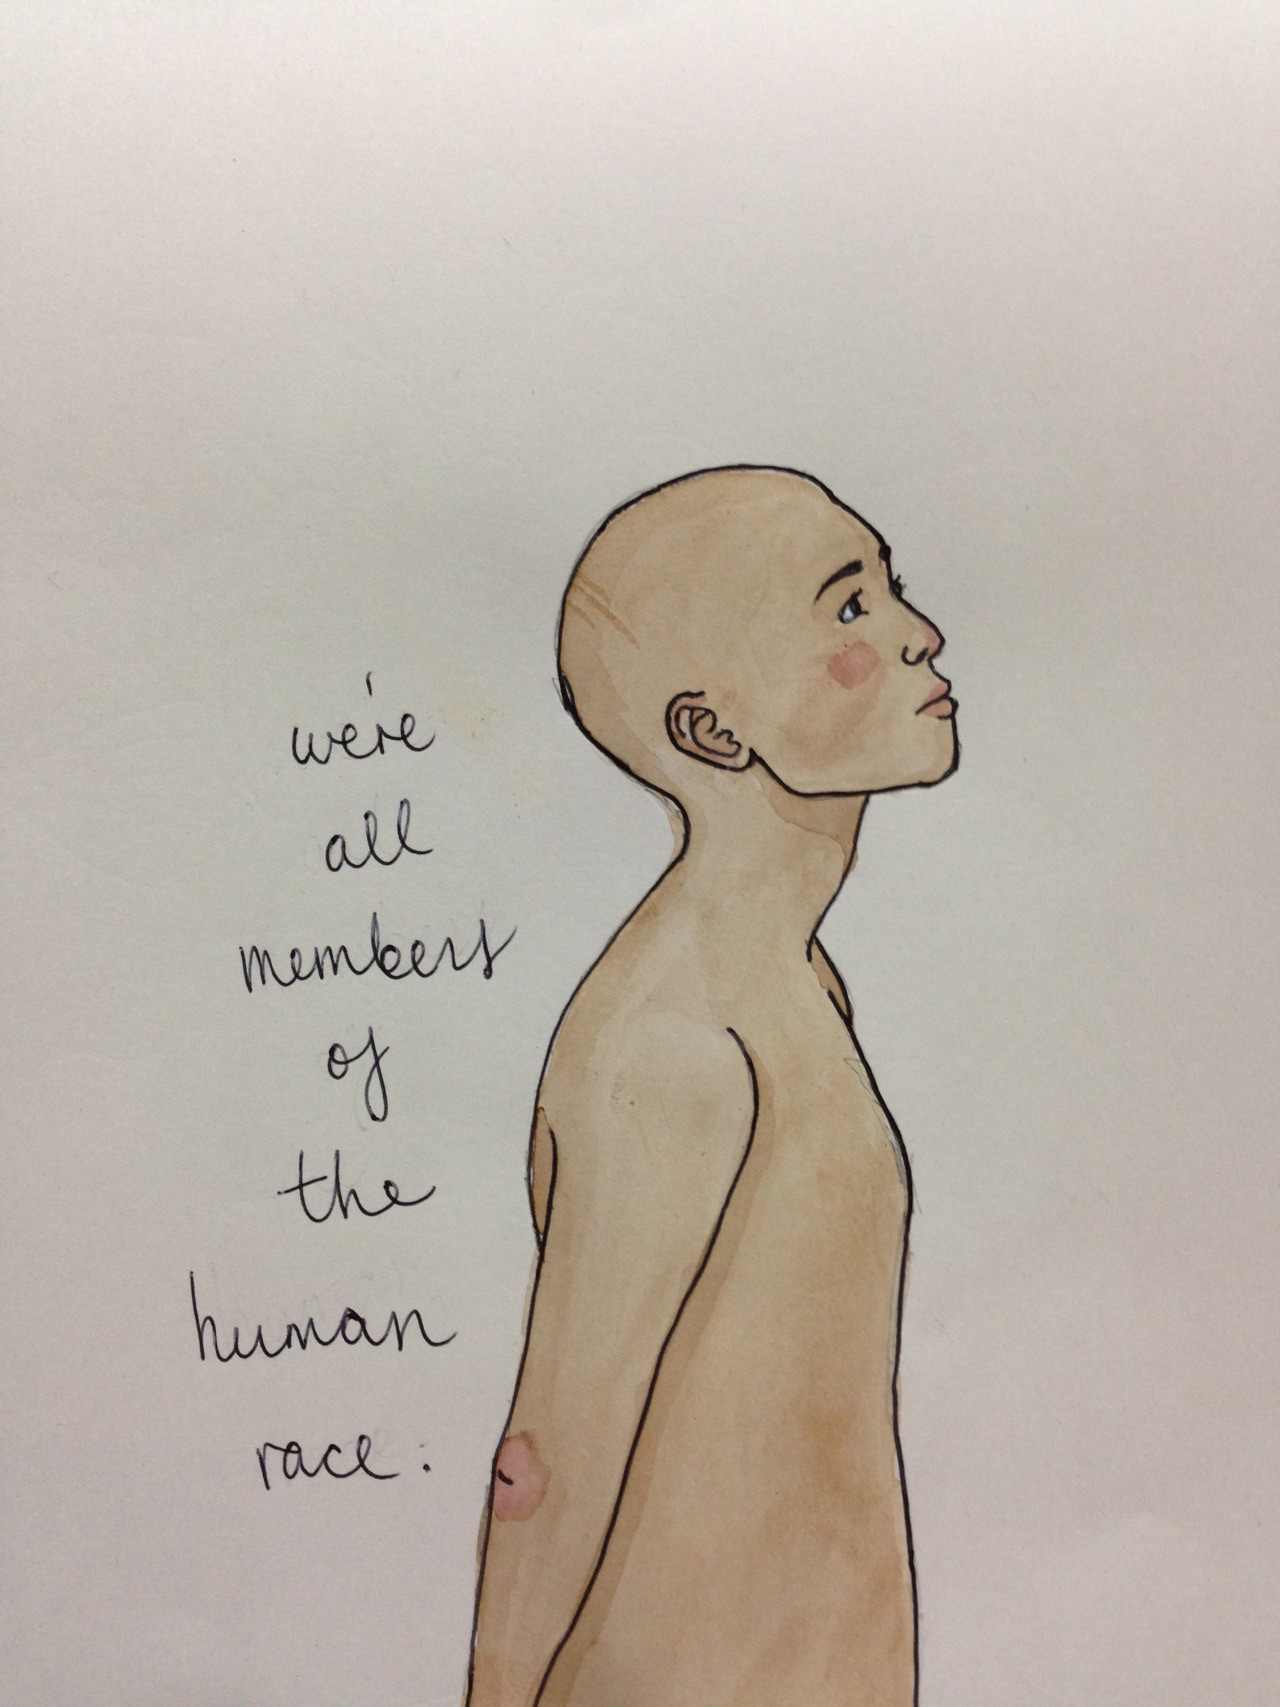 we're
all
members
of
the
human
race.